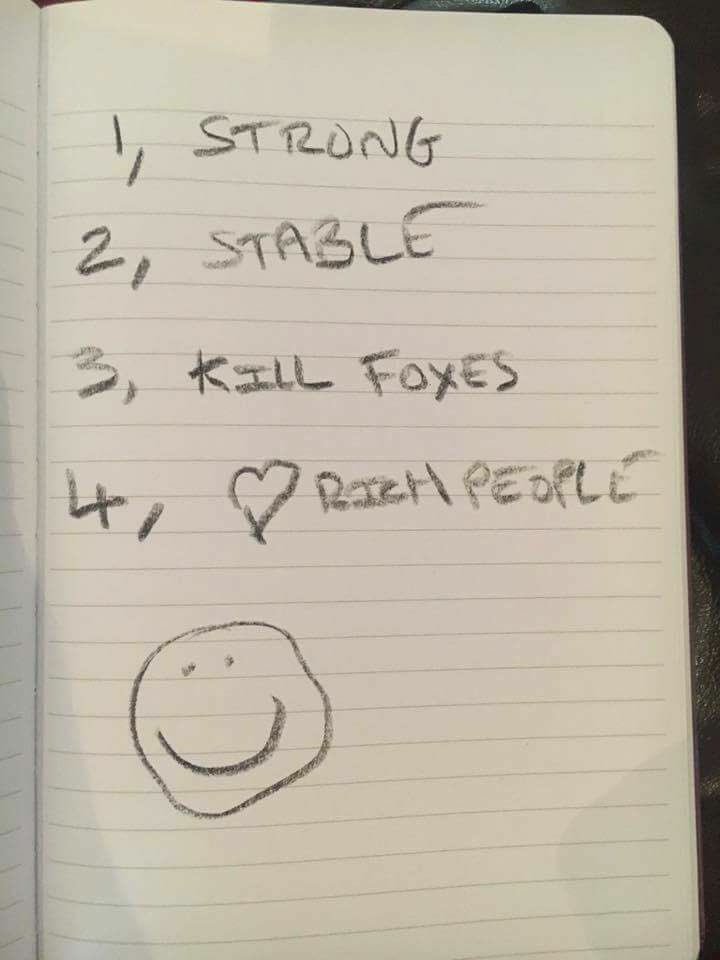 1, STRONG
2, STABLE
3, KILL FOXES
4, ♡ RICH PEOPLE